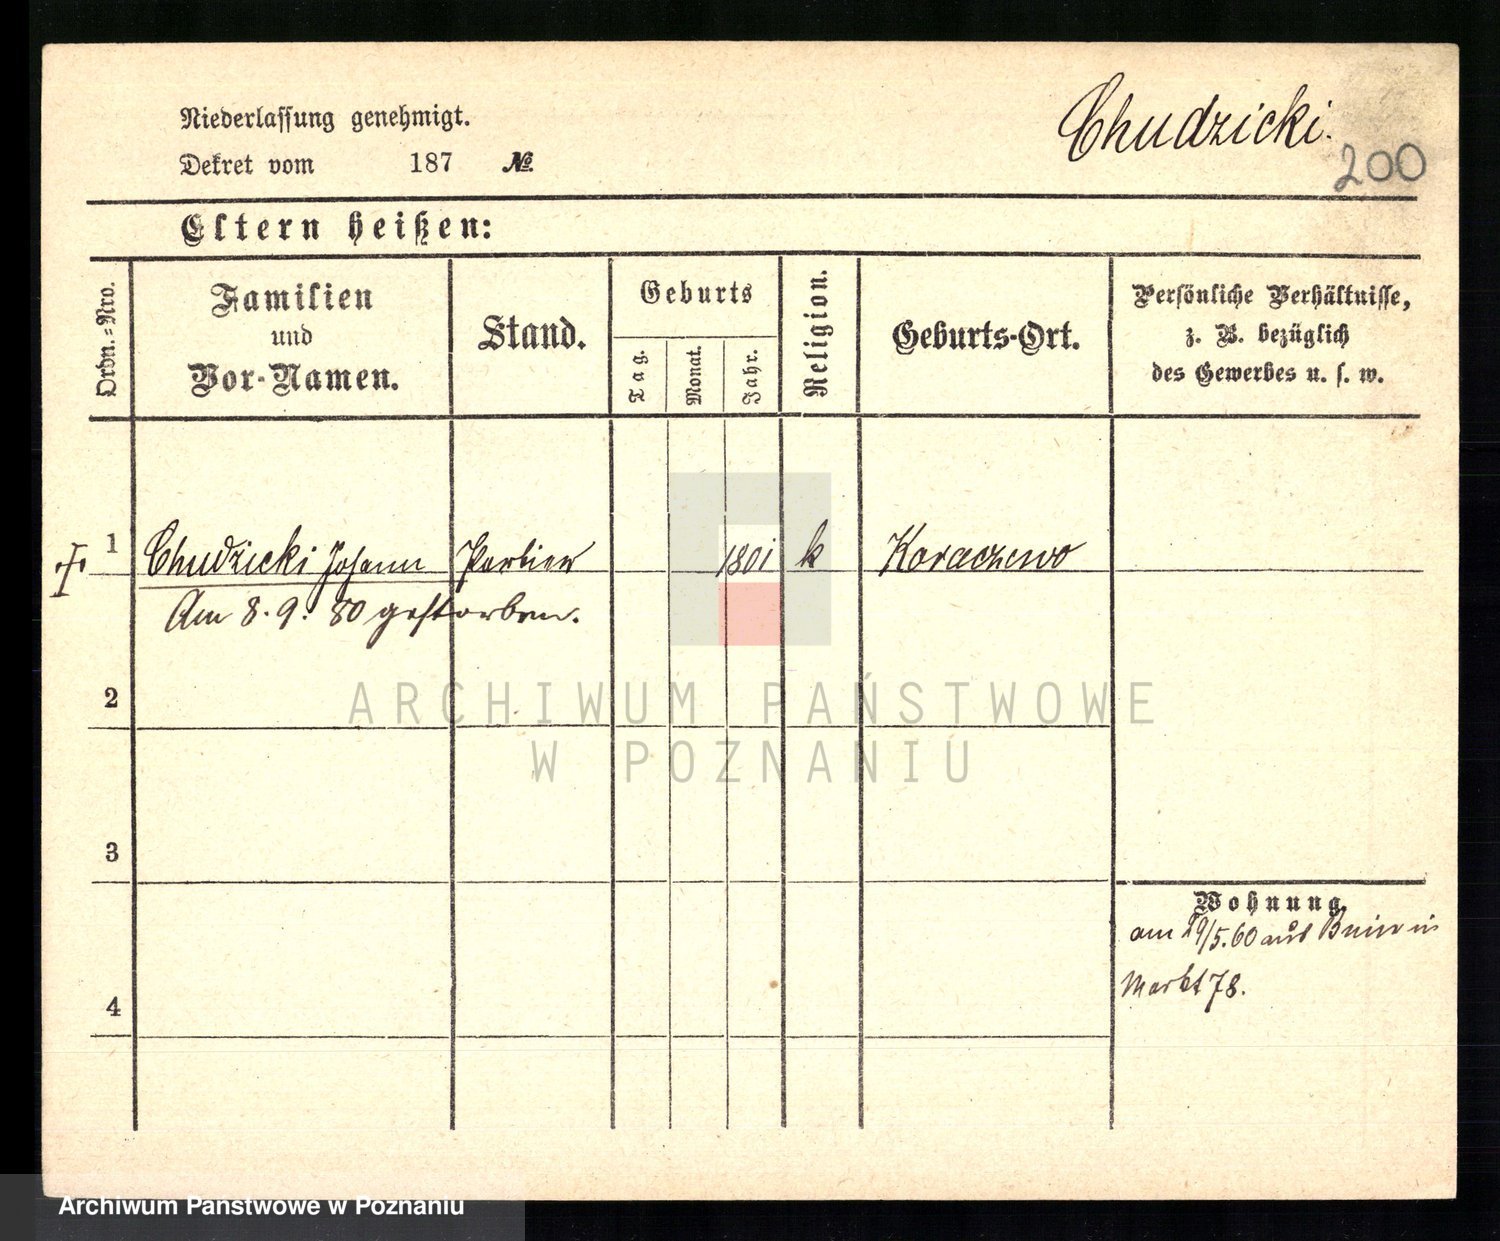 Chudzicki.
200
Niederlassung genehmigt.
Dekret vom 187 №
Eltern heißen:
Ordn.-Nro.
Familien und Vor-Namen.
Stand.
Geburts
Tag.
Monat.
Jahr.
Religion.
Geburts-Ort.
Persönliche Verhältnisse,
z. B. bezüglich
des Gewerbes u. s. w.
1 Chudzicki Johann 1801 k
Am 8.9.80 gestorben.
2
3
4
Wohnung.
am 29/5.60 aus Bnin in
Markt 78.
ARCHIWUM PAŃSTWOWE
W POZNANIU
Archiwum Państwowe w Poznaniu